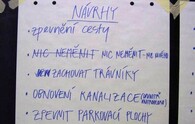 NÁVRHY
· zpevnění cesty
· NIC NEMĚNIT NIC NEMĚNIT
· ZACHOVAT TRÁVNÍKY
· OBNOVENÍ KANALIZACE
· ZPEVNIT PARKOVACÍ PLOCHY